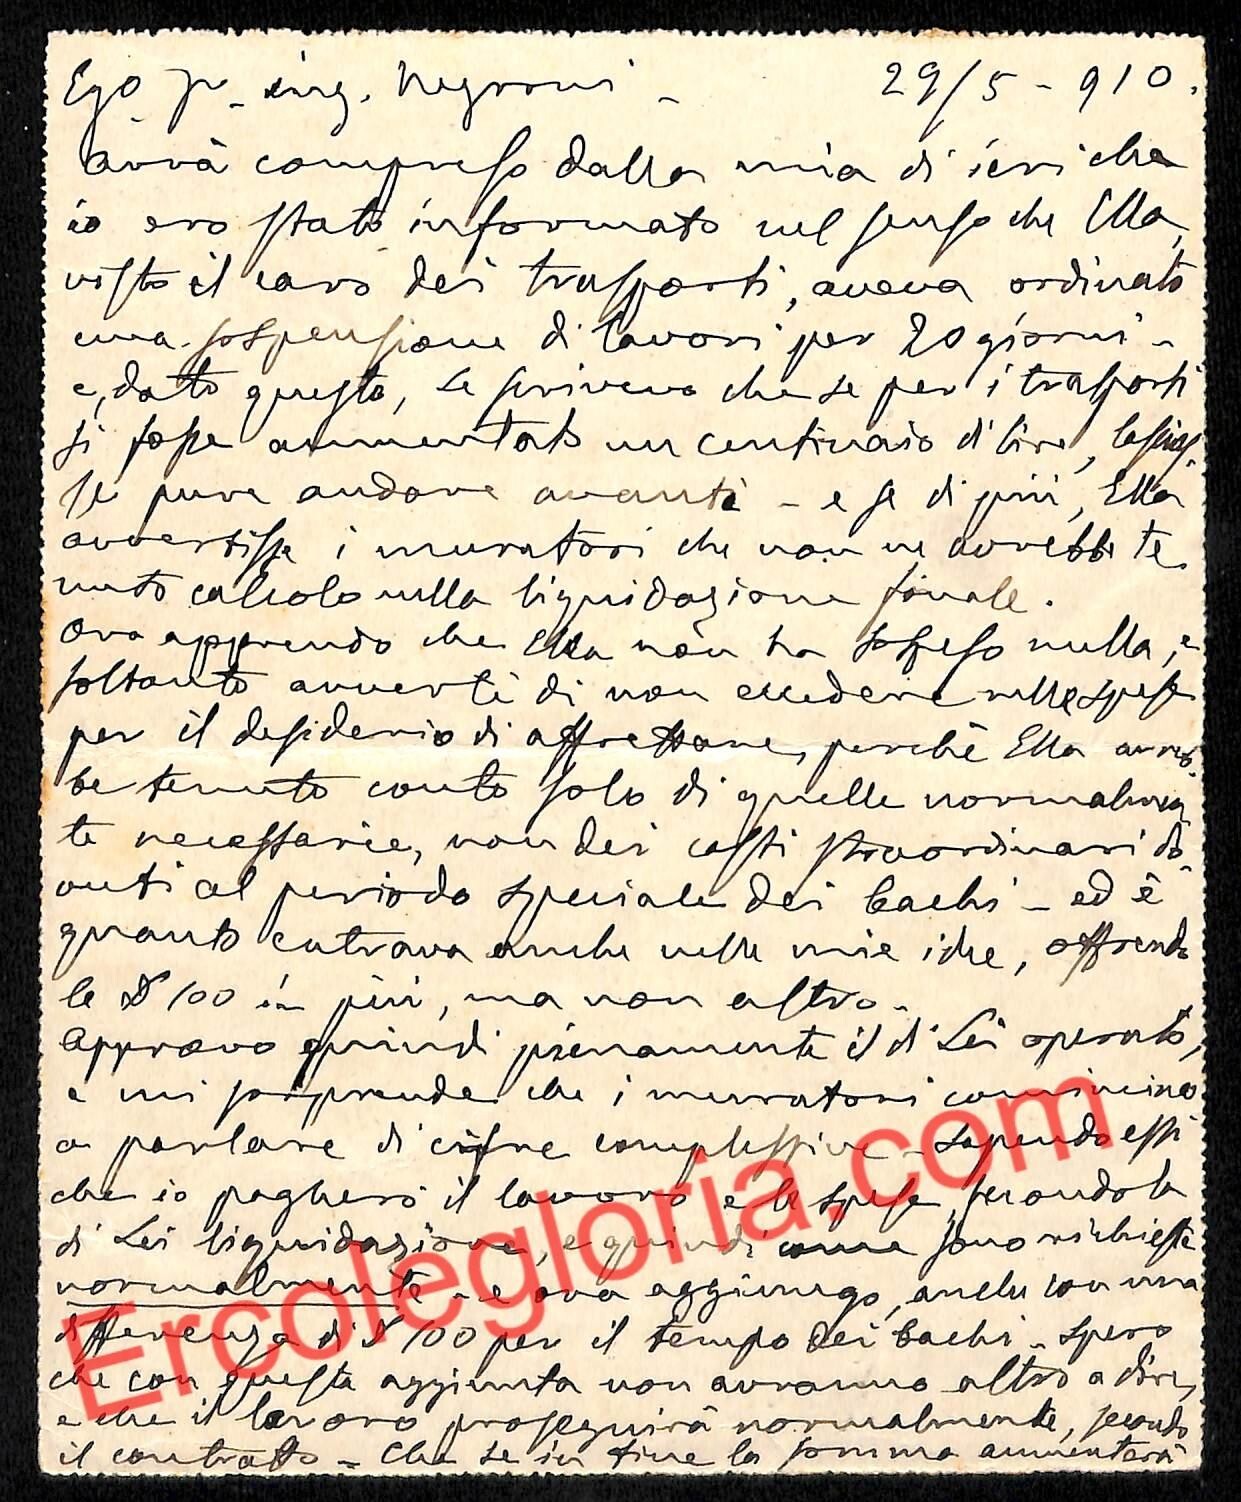 Ego Sr. ing. Negroni - 29/5 - 910.
Avrà compreso dalla mia di ieri che
io ero stato informato nel senso che Ella,
visto il caro dei trasporti, aveva ordinato
una sospensione di lavori per 20 giorni -
e, dato questo, Le scrivevo che se per i trasporti
si fosse aumentato un centinaio di lire, lascias-
se pure andare avanti - e se di più, Ella
avvertisse i muratori che non ne avrebbe te
nuto calcolo nella liquidazione finale.
Ora apprendo che Ella non ha sospeso nulla, e
soltanto avvertì di non eccedere nelle spese
per il desiderio di affrettare, perchè Ella avreb-
be tenuto conto solo di quelle normalmen
te necessarie, non dei costi straordinari do-
vuti al periodo speciale dei bachi - ed è
quanto entrava anche nelle mie idee, offrendo
le £ 100 in più, ma non altro -
Approvo quindi pienamente il di Lei operato,
e mi sorprende che i muratori comincino
a parlare di cifre complessive - sapendo essi
che io pagherò il lavoro e le spese, secondo la
di Lei liquidazione, e quindi come sono richieste
normalmente - e ora aggiungo, anche con una
differenza di £ 100 per il tempo dei bachi - spero
che con questa aggiunta non avranno altro a dire,
e che il lavoro proseguirà normalmente, secondo
il contratto - Che se in fine la somma aumenterà
Ercolegloria.com